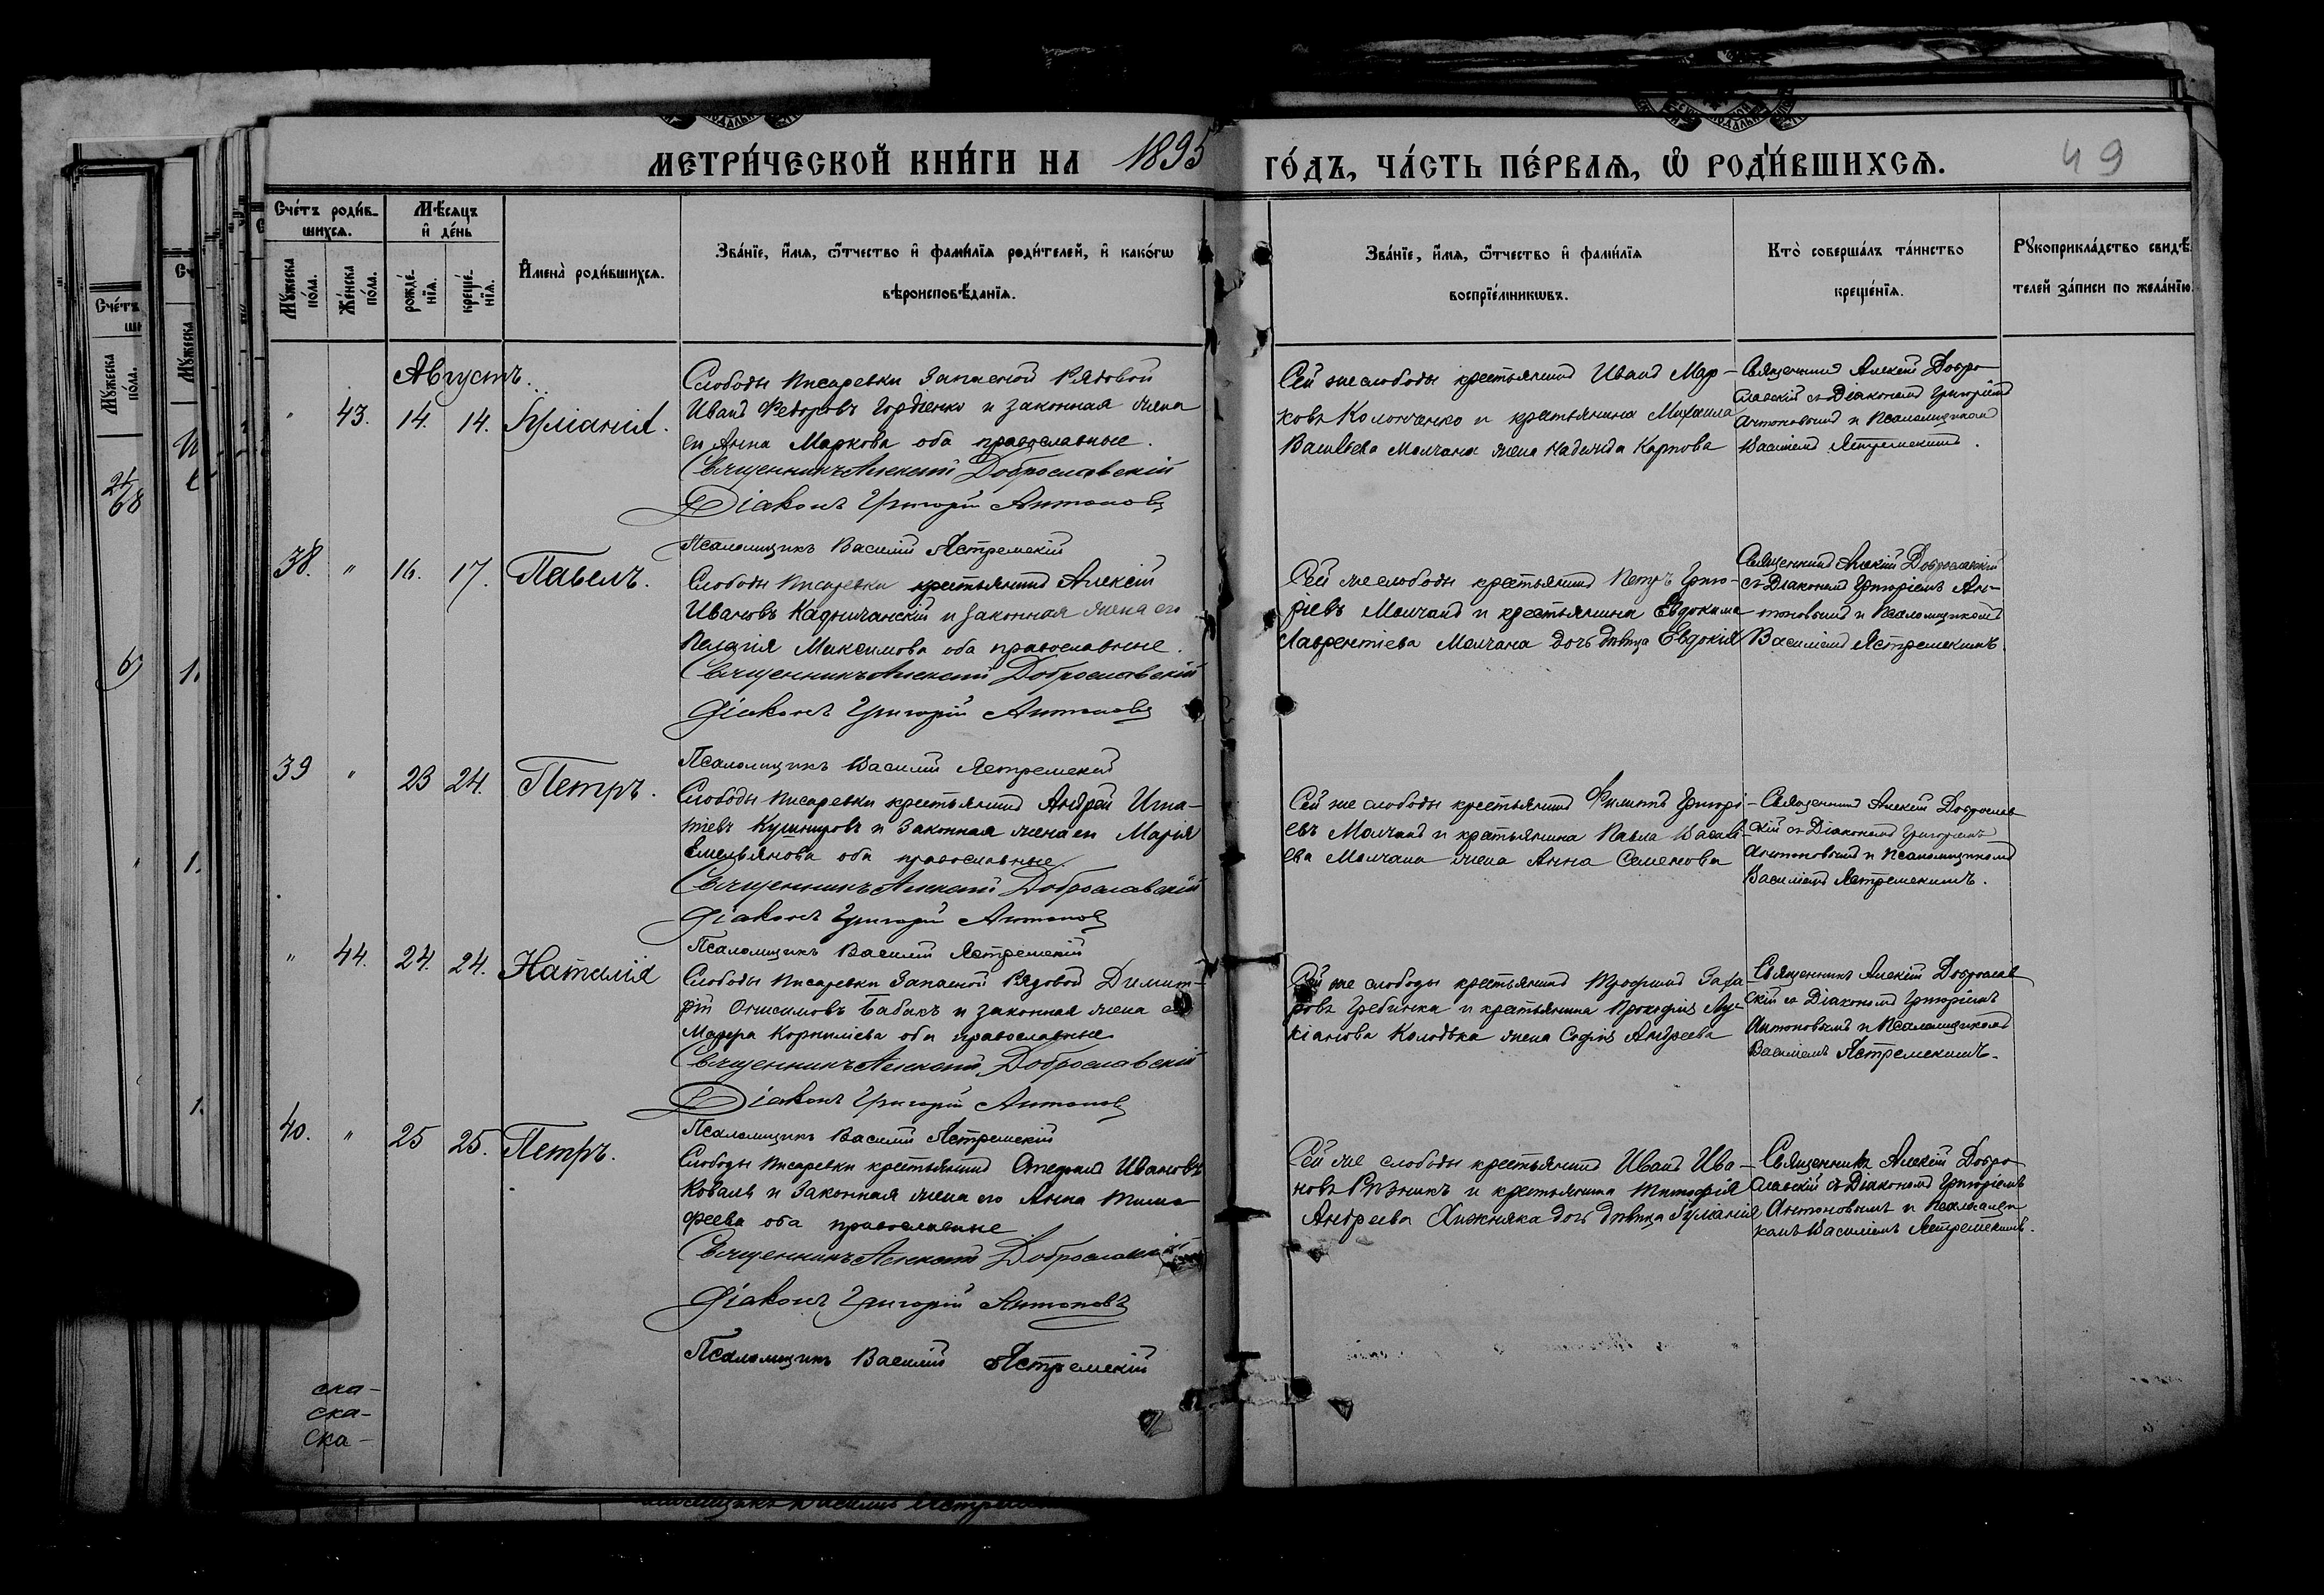 МЕТРИ́ЧЕСКОЙ КНИ́ГИ НА 1895
ГО́ДЪ, ЧА́СТЬ ПЕ́РВАѦ, Ѡ҆ РОДИ́ВШИХСѦ.
49
Сче́тъ роди́в-
шихсѧ.
Мѣ́сѧцъ
и҆ де́нь
Мꙋ́жеска
по́ла.
Же́нска
по́ла.
рожде́-
нїѧ.
креще́-
нїѧ.
И҆мена̀ роди́вшихсѧ.
Зва́нїе, и҆́мѧ, ѻ҆́тчество и҆ фами́лїѧ роди́телей, и҆ како́гѡ
вѣроисповѣ́данїѧ.
Зва́нїе, и҆́мѧ, ѻ҆́тчество и҆ фами́лїѧ
воспрїе́мникѡвъ.
Кто̀ соверша́лъ та́инство
креще́нїѧ.
Рꙋкоприкла́дство свидѣ́-
телей за́писи по жела́нїю.
Августъ.
" 43. 14. 14. Іуліанія.
Слободы Писаревки Запасной Рядовой
Иванъ Федоровъ Гордіенко и законная жена
его Анна Маркова оба православные.
Священникъ Алексій Доброславскій
Діаконъ Григорій Антоновъ
Псаломщикъ Василій Ястремскій
Сей же слободы крестьянинъ Иванъ Мар-
ковъ Колонченко и крестьянина Михаила
Васильева Молчана жена Надежда Карпова
Священникъ Алексій Добро-
славскій съ Діакономъ Григоріемъ
Антоновымъ и Псаломщикомъ
Василіемъ Ястремскимъ.
38. " 16. 17. Павелъ.
Слободы Писаревки крестьянинъ Алексій
Ивановъ Кадничанскій и законная жена его
Пелагія Максимова оба православные.
Священникъ Алексій Доброславскій
Діаконъ Григорій Антоновъ
Псаломщикъ Василій Ястремскій
Сей же слободы крестьянинъ Петръ Григо-
ріевъ Молчанъ и крестьянина Евдокима
Лаврентіева Молчана дочь дѣвица Евдокія
Священникъ Алексій Доброславскій
съ Діакономъ Григоріемъ Ан-
тоновымъ и Псаломщикомъ
Василіемъ Ястремскимъ.
39 " 23 24. Петръ.
Слободы Писаревки крестьянинъ Андрей Игна-
тіевъ Кушнировъ и Законная жена его Марія
Емельянова оба православные.
Священникъ Алексій Доброславскій
Діаконъ Григорій Антоновъ
Псаломщикъ Василій Ястремскій
Сей же слободы крестьянинъ Филиппъ Григорі-
евъ Молчанъ и крестьянина Павла Василь-
ева Молчана жена Анна Семенова
Священникъ Алексій Доброслав-
скій съ Діакономъ Григоріемъ
Антоновымъ и Псаломщикомъ
Василіемъ Ястремскимъ.
" 44. 24. 24. Наталія
Слободы Писаревки Запасной Рядовой Димит-
рій Онисимовъ Бабакъ и законная жена его
Марѳа Корниліева оба православные
Священникъ Алексій Доброславскій
Діаконъ Григорій Антоновъ
Псаломщикъ Василій Ястремскій
Сей же слободы крестьянинъ Трофимъ Заха-
ровъ Гребинка и крестьянина Прокофія Лу-
кіанова Колодка жена Софія Андреева
Священникъ Алексій Доброслав
скій съ Діакономъ Григоріемъ
Антоновымъ и Псаломщикомъ
Василіемъ Ястремскимъ.
40. " 25 25. Петръ.
Слободы Писаревки крестьянинъ Стефанъ Ивановъ
Коваль и Законная жена его Анна Тимо-
феева оба православные
Священникъ Алексій Доброславскій
Діаконъ Григорій Антоновъ
Псаломщикъ Василій Ястремскій
Сей же слободы крестьянинъ Иванъ Ива-
новъ Рѣзникъ и крестьянина Тимофія
Андреева Хижняка дочь дѣвица Іуліанія
Священникъ Алексій Добро-
славскій съ Діакономъ Григоріемъ
Антоновымъ и Псаломщи
комъ Василіемъ Ястремскимъ.
ска-
ска-
ска-